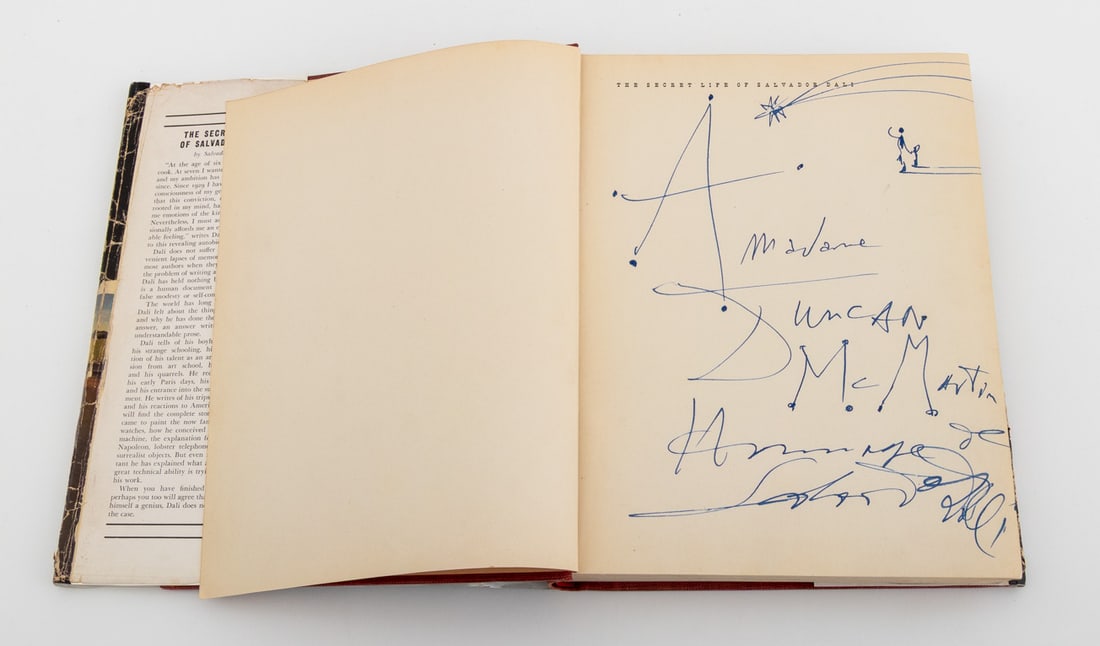 THE SECR
OF SALVAD
by Salvad
"At the age of six
cook. At seven I want
and my ambition has
since. Since 1929 I have
consciousness of my ge
that this conviction,
rooted in my mind, ha
me emotions of the kin
Nevertheless, I must a
sionally affords me an e
able feeling," writes Da
to this revealing autobi
Dali does not suffer
venient lapses of memo
most authors when they
the problem of writing a
Dali has held nothing b
is a human document
false modesty or self-con
The world has long
Dali felt about the thing
and why he has done the
answer, an answer writ
understandable prose.
Dali tells of his boyh
his strange schooling, hi
tion of his talent as an ar
sion from art school, h
and his quarrels. He re
his early Paris days, his
and his entrance into the su
He writes of his trips
and his reactions to Ameri
will find the complete stor
came to paint the now fam
watches, how he conceived
machine, the explanation f
Napoleon, lobster telephone
surrealist objects. But even
tant he has explained what
great technical ability is tryi
his work.
When you have finished
perhaps you too will agree tha
himself a genius, Dali does no
the case.
THE SECRET LIFE OF SALVADOR DALI
A
Madame
DUNCAN
McMartin
Hommage de
Salvador Dali